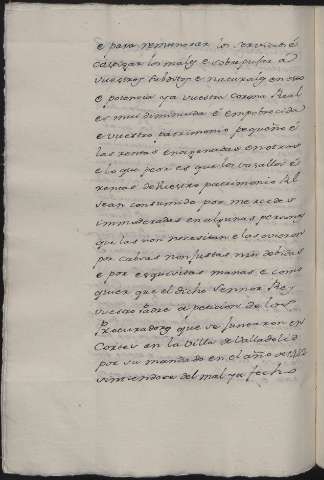 e para remunerar los servicios é
castigar los males e sobre pujar a
vuestros subditos e naturales en esto
e potencia ya vuestra corona Real
es mui diminuida é empobrecida
e vuestro patrimonio pequeño é
las rentas enagenadas en otros
e lo que peor es que los vasallos é
rentas de Vuestro patrimonio Rl
sean consumido por mercedes
immoderadas en algunas personas
que las non necesitan e las ovieron
por cabsas non justas nin debidas
e por exquisitas manas e como
quier que el dicho Sennor Rey
vuestro Padre a peticion de los
Procuradores que se juntaron en
Cortes en la Villa de Valladolid
por su mandado en el año de 1442
sintiendose del mal ya fecho